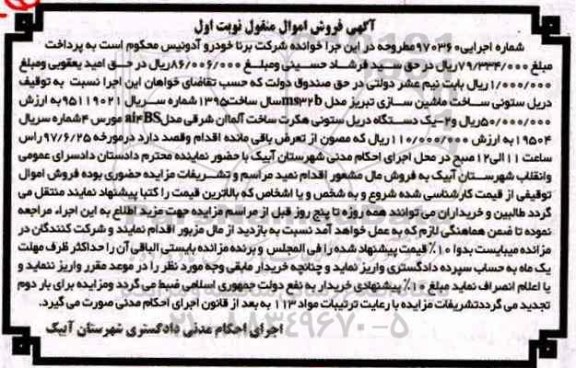 آگهی فروش اموال منقول نوبت اول
شماره اجرایی ۹۷۰۳۶۰ مطروحه در این جرا خوانده شرکت برنا خودرو آدونیس محکوم است به پرداخت
مبلغ ۷۹/۳۳۴/۰۰۰ریال در حق سید فرشاد حسینی ومبلغ ۸۶/۰۰۶/۰۰۰ریال در حق امید یعقوبی ومبلغ
۱/۰۰۰/۰۰۰ریال بابت نیم عشر دولتی در حق صندوق دولت که حسب تقاضای خواهان این اجرا نسبت به توقیف
دریل ستونی ساخت ماشین سازی تبریز مدل ms۳۲b سال ساخت۱۳۹۵ شماره سریال ۹۵۱۱۹۰۲۱ به ارزش
۵۰/۰۰۰/۰۰۰ریال و۲-یک دستگاه دریل ستونی هکرت ساخت آلمان شرقی مدل air۴BS مورس ۴شماره سریال
۱۹۵۰۴ به ارزش ۱۱۰/۰۰۰/۰۰۰ریال که مصون از تعرض باقی مانده اقدام وقصد دارد درمورخه ۹۷/۶/۲۵ راس
ساعت ۱۱الی۱۲صبح در محل اجرای احکام مدنی شهرستان آبیک با حضور نماینده محترم دادستان دادسرای عمومی
وانقلاب شهرستان آبیک به فروش مال مشعور اقدام نمید مراسم و تشریفات مزایده حضوری بوده فروش اموال
توقیفی از قیمت کارشناسی شده شروع و به شخص و یا اشخاص که بالاترین قیمت را کتبا پیشنهاد نمایند منتقل می
گردد طالبین و خریداران می توانند همه روزه تا پنج روز قبل از مراسم مزایده جهت مزید اطلاع به این اجراء مراجعه
نموده تا ضمن هماهنگی لازم که به عمل خواهد آمد نسبت به بازدید از مال مزبور اقدام نمایند و شرکت کنندگان در
مزانده میبایست بدوا ۱۰٪ قیمت پیشنهاد شده را فی المجلس و برنده مزانده بایستی الباقی آن را حداکثر ظرف مهلت
یک ماه به حساب سپرده دادگستری واریز نماید و چنانچه خریدار مابقی وجه مورد نظر را در موعد مقرر واریز ننماید و
یا اعلام انصراف نماید مبلغ ۱۰٪ پیشنهادی خریدار به نفع دولت جمهوری اسلامی ضبط می گردد ومزایده برای بار دوم
تجدید می گرددتشریفات مزایده با رعایت ترتیبات مواد ۱۱۳ به بعد از قانون اجرای احکام مدنی صورت می گیرد.
اجرای احکام مدنی دادگستری شهرستان آبیک
۰۲۱-۸۸۳۴۹۶۷۰-۵